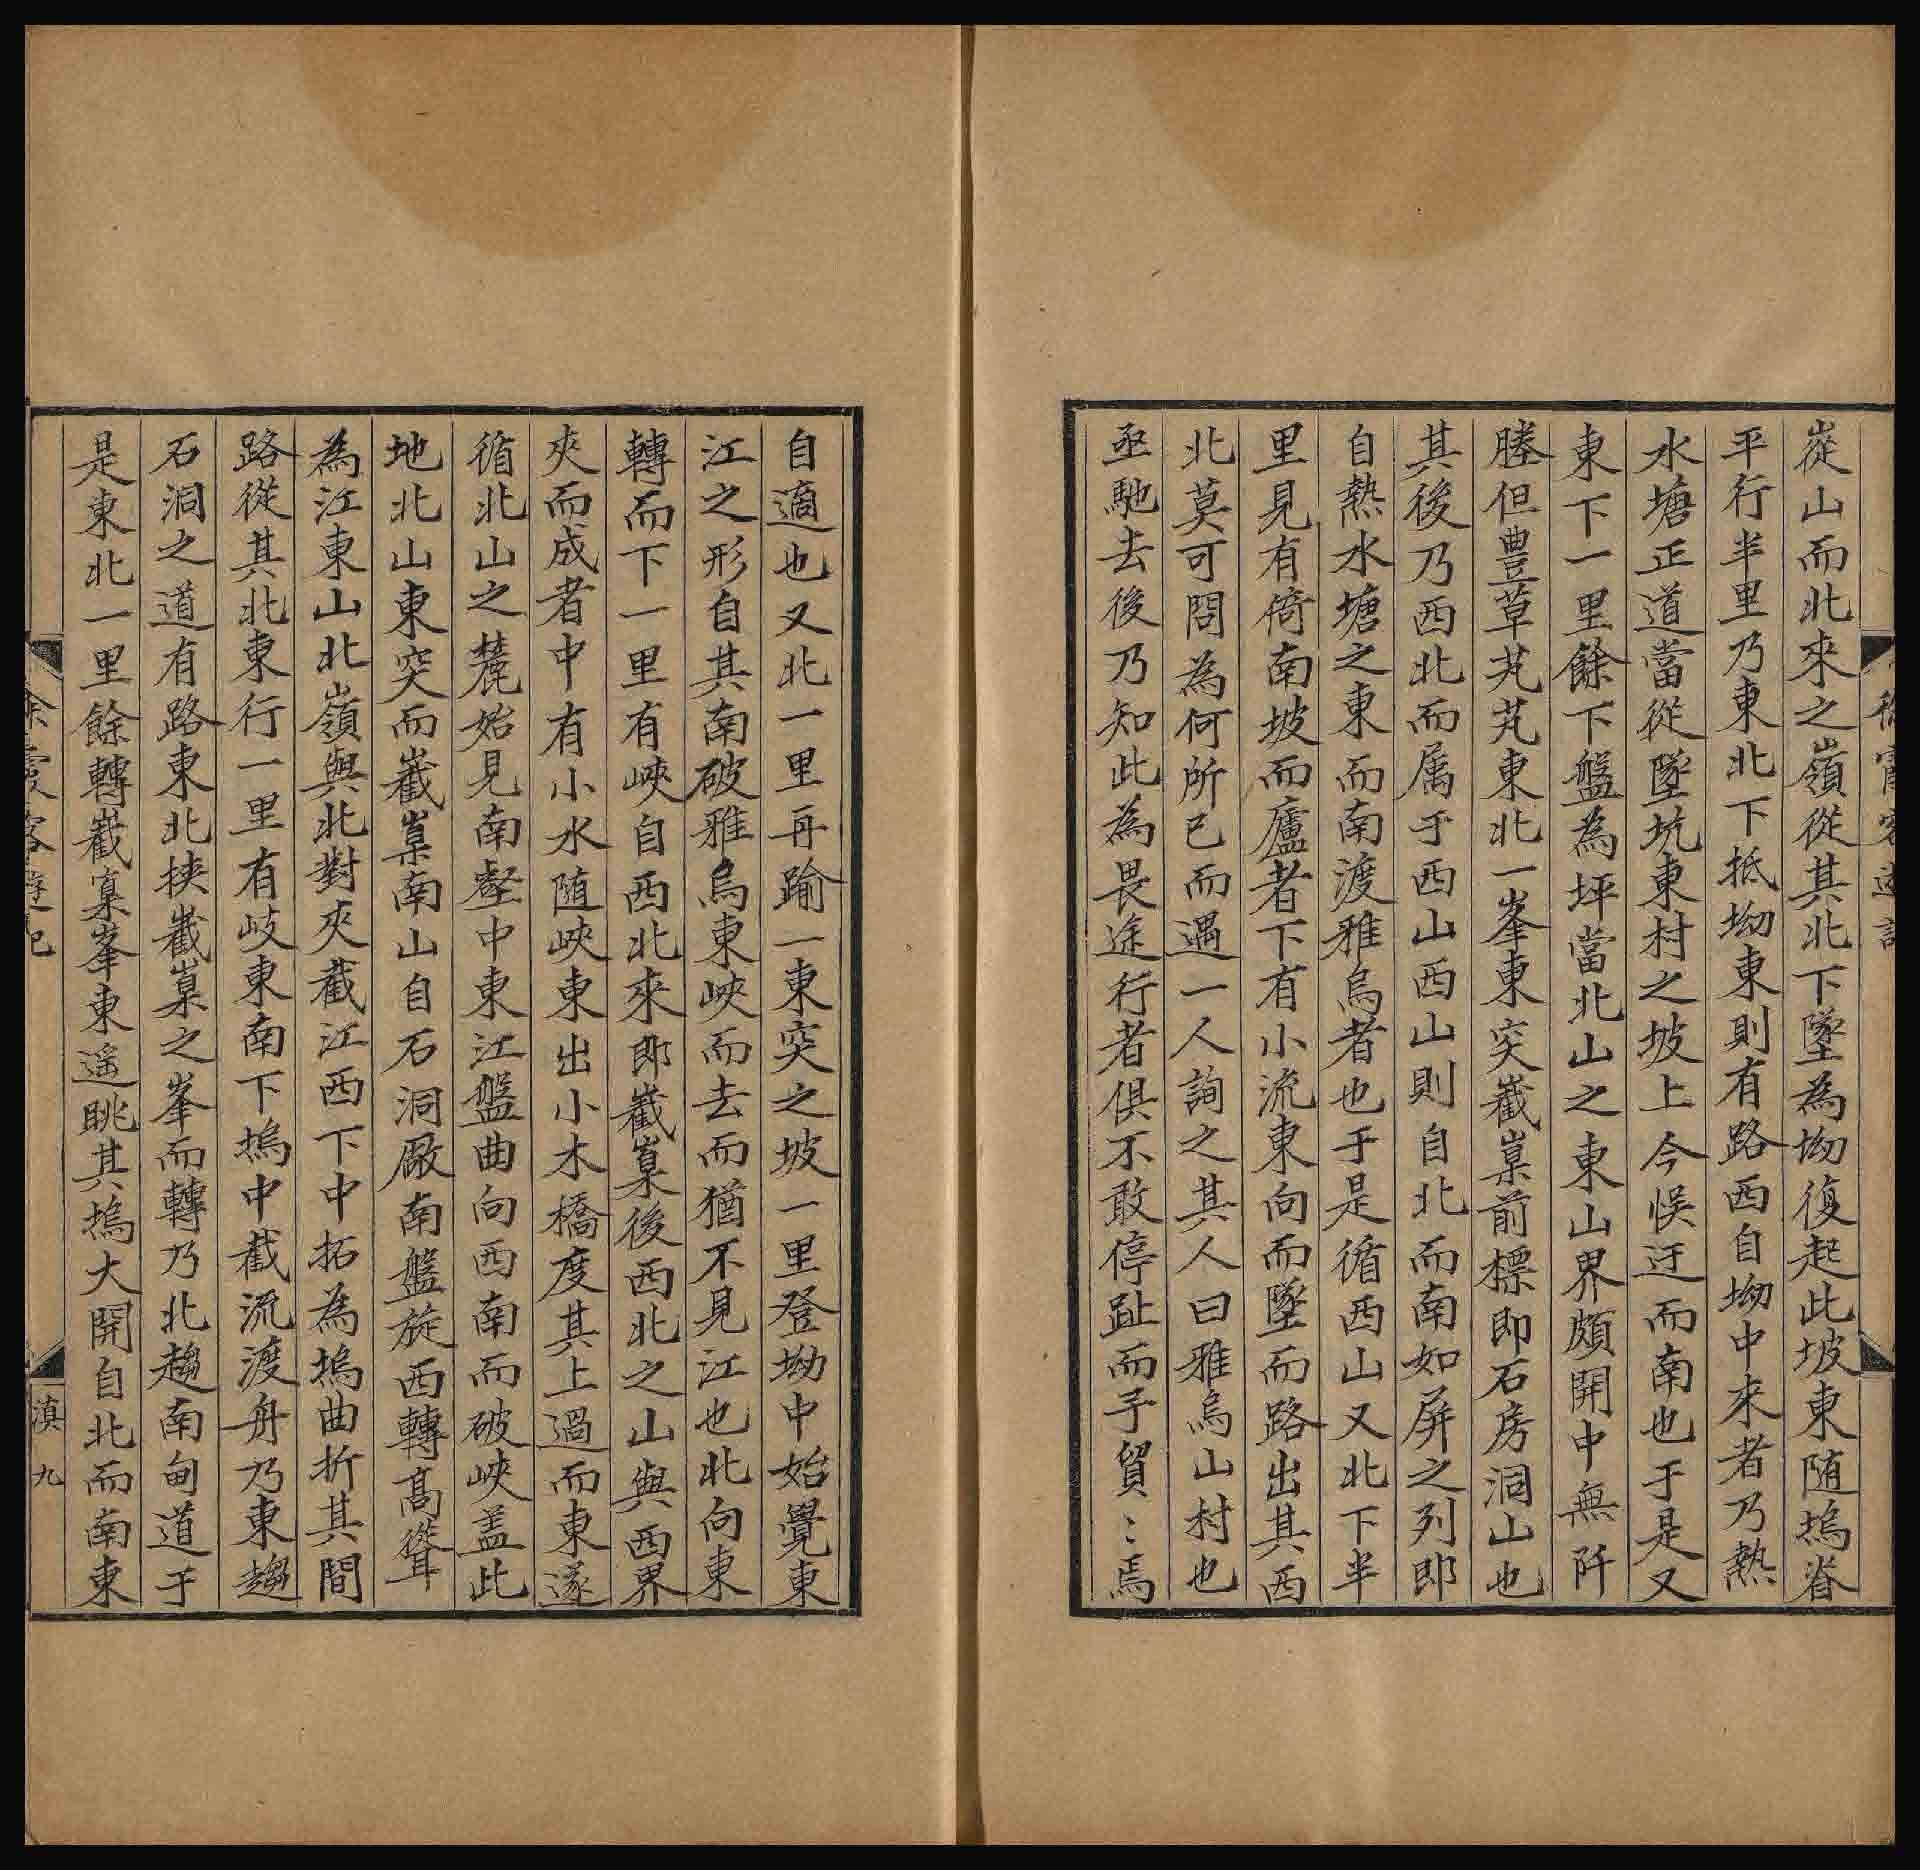 嵸山而北來之嶺從其北下墜為坳復起此坡東随塢脊
平行半里乃東北下抵坳東則有路西自坳中來者乃熱
水塘正道當從墜坑東村之坡上今悞迂而南也于是又
東下一里餘下盤為坪當北山之東山界頗開中無阡
塍但豊草芃芃東北一峯東突嶻嵲前標即石房洞山也
其後乃西北而属于西山西山則自北而南如屏之列即
自熱水塘之東而南渡雅烏者也于是循西山又北下半
里見有倚南坡而廬者下有小流東向而墜而路出其西
北莫可問為何所已而遇一人詢之其人曰雅烏山村也
亟馳去後乃知此為畏途行者俱不敢停趾而予貿〻焉
自適也又北一里再踰一東突之坡一里登坳中始覺東
江之形自其南破雅烏東峽而去而猶不見江也北向東
轉而下一里有峽自西北來即嶻嵲後西北之山與西界
夾而成者中有小水随峽東出小木橋度其上過而東遂
循北山之麓始見南壑中東江盤曲向西南而破峽盖此
地北山東突而嶻嵲南山自石洞厰南盤旋西轉髙聳
為江東山北嶺與北對夾截江西下中拓為塢曲折其間
路從其北東行一里有岐東南下塢中截流渡舟乃東趨
石洞之道有路東北挟嶻嵲之峯而轉乃北趨南甸道于
是東北一里餘轉嶻嵲峯東遥眺其塢大開自北而南東
徐霞客遊記
滇九